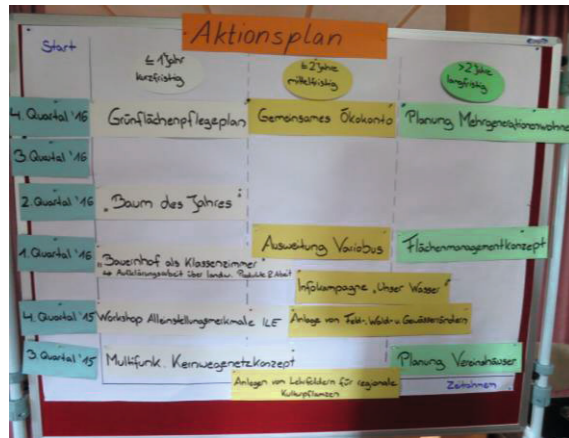 Aktionsplan
Start
≤ 1 Jahr
kurzfristig
≤ 2 Jahre
mittelfristig
>2 Jahre
langfristig
4. Quartal '16
Grünflächenpflegeplan
Gemeinsames Ökokonto
Planung Mehrgenerationswohne
3. Quartal '16
2. Quartal '16
"Baum des Jahres"
1. Quartal '16
Bauernhof als Klassenzimmer
Aufklärungsarbeit über landw. Produkte & Arbeit
Ausweitung Variobus
Flächenmanagementkonzept
Infokampagne "Unser Wasser"
4. Quartal '15
Workshop Alleinstellungsmerkmale ILE
Anlage von Feld-, Wald- u. Gewässerrändern
3. Quartal '15
Multifunk. Kernwegenetzkonzept
Planung Vereinshäuser
Anlagen von Lehrfeldern für regionale
Kulturpflanzen
Zeitrahmen